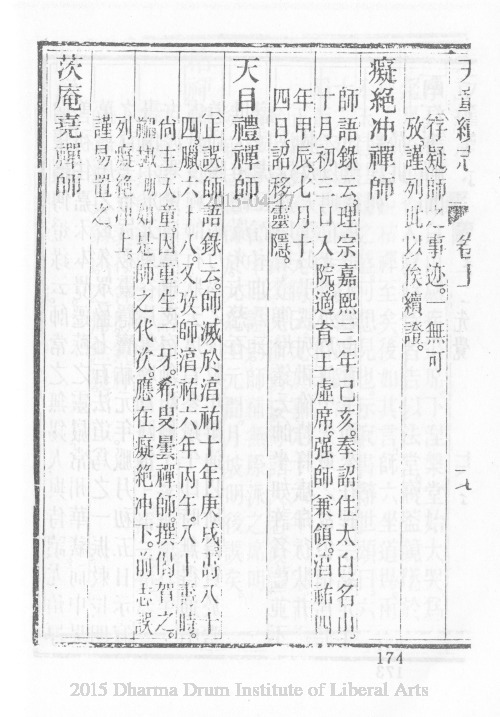 天童續志 卷上 一七
(存疑)師之事迹。一無可
攷。謹列此以俟續證。
癡絕冲禪師
師語錄云。理宗嘉熙三年己亥。奉詔住太白名山。
十月初三日入院。適育王虛席。強師兼領。淳祐四
年甲辰。七月十
四日。詔移靈隱。
天目禮禪師
(正誤)師語錄云。師滅於淳祐十年庚戌。壽八十
四。臘六十八。又攷師淳祐六年丙午。八十壽時。
尚主天童。因重生一牙。希叟曇禪師。撰偈賀之。
如是師之代次。應在癡絕冲下。前志誤
列癡絕冲上。
謹易置之。
茨庵堯禪師
174
2015-04-17
2015 Dharma Drum Institute of Liberal Arts